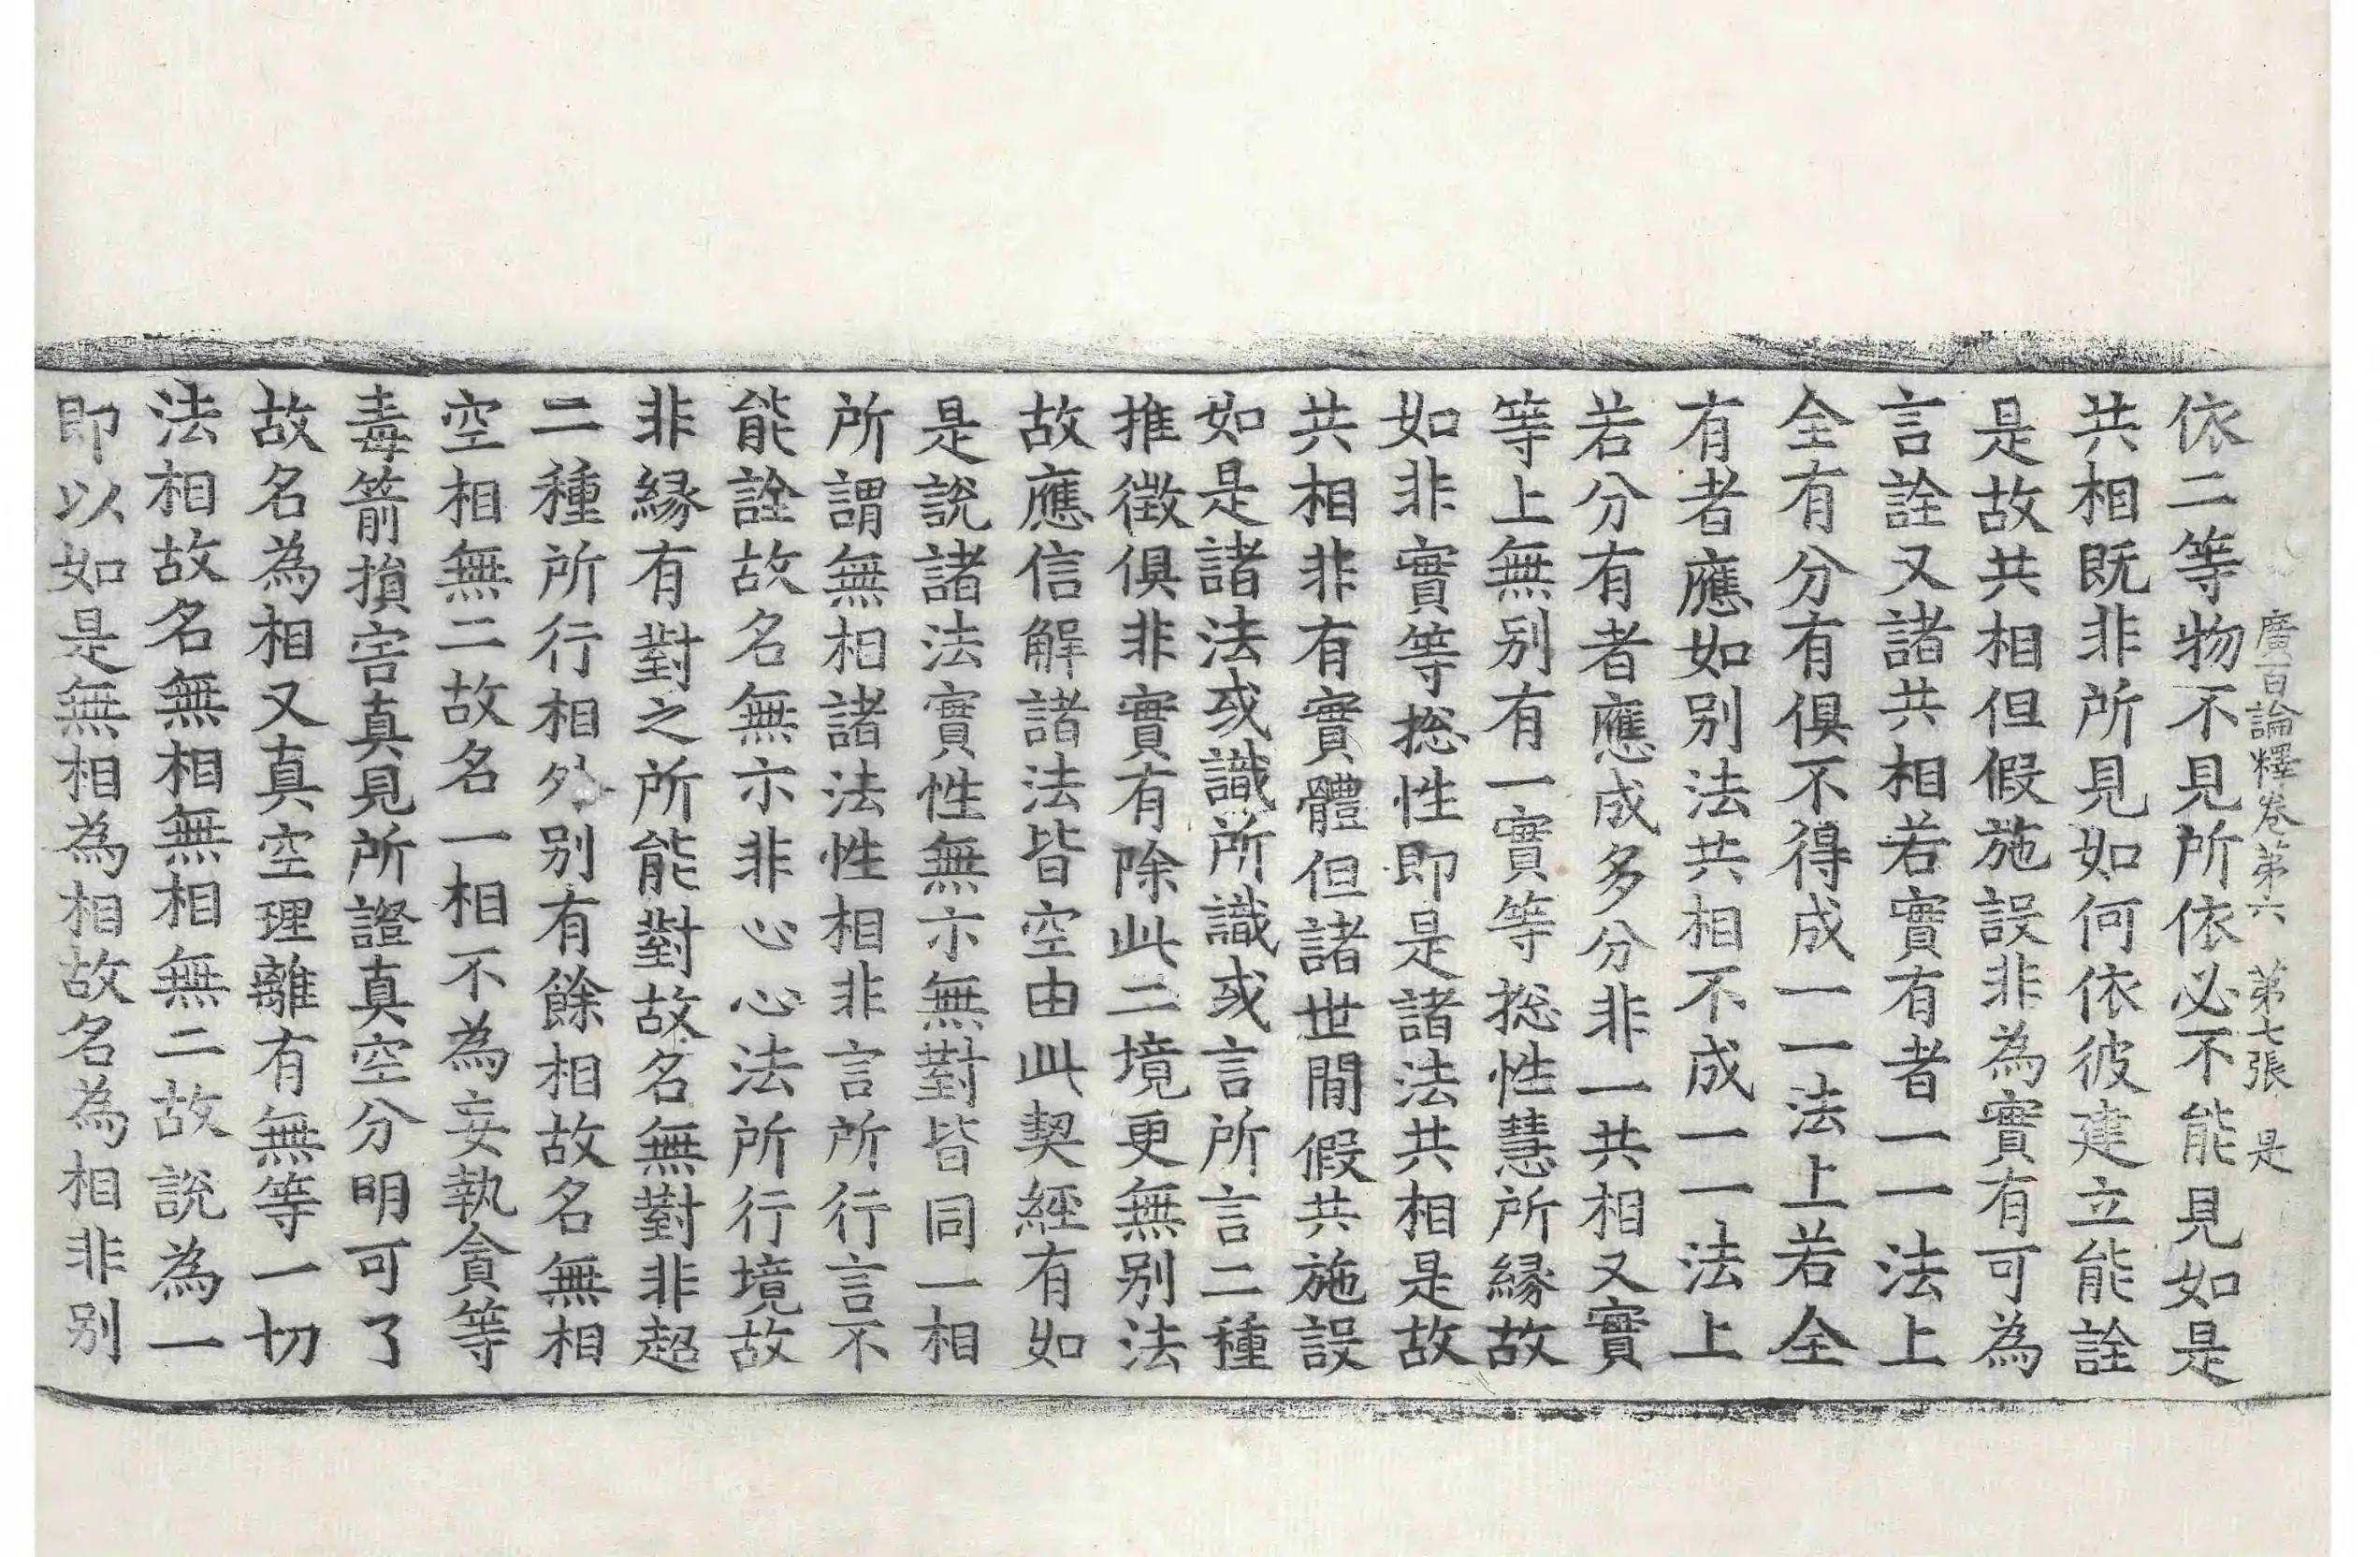 廣百論釋卷第六　第七張　是
依二等物不見所依必不能見如是
共相既非所見如何依彼建立能詮
是故共相但假施設非為實有可為
言詮又諸共相若實有者一一法上
全有分有俱不得成一一法上若全
有者應如别法共相不成一一法上
若分有者應成多分非一共相又實
等上無别有一實等捴性慧所緣故
如非實等捴性即是諸法共相是故
共相非有實體但諸世間假共施設
如是諸法或識所識或言所言二種
推徵俱非實有除此二境更無别法
故應信解諸法皆空由此契經有如
是說諸法實性無示無對皆同一相
所謂無相諸法性相非言所行言不
能詮故名無示非心心法所行境故
非緣有對之所能對故名無對非超
二種所行相外别有餘相故名無相
空相無二故名一相不為妄執貪等
毒箭損害真見所證真空分明可了
故名為相又真空理離有無等一切
法相故名無相無相無二故說為一
即以如是無相為相故名為相非别